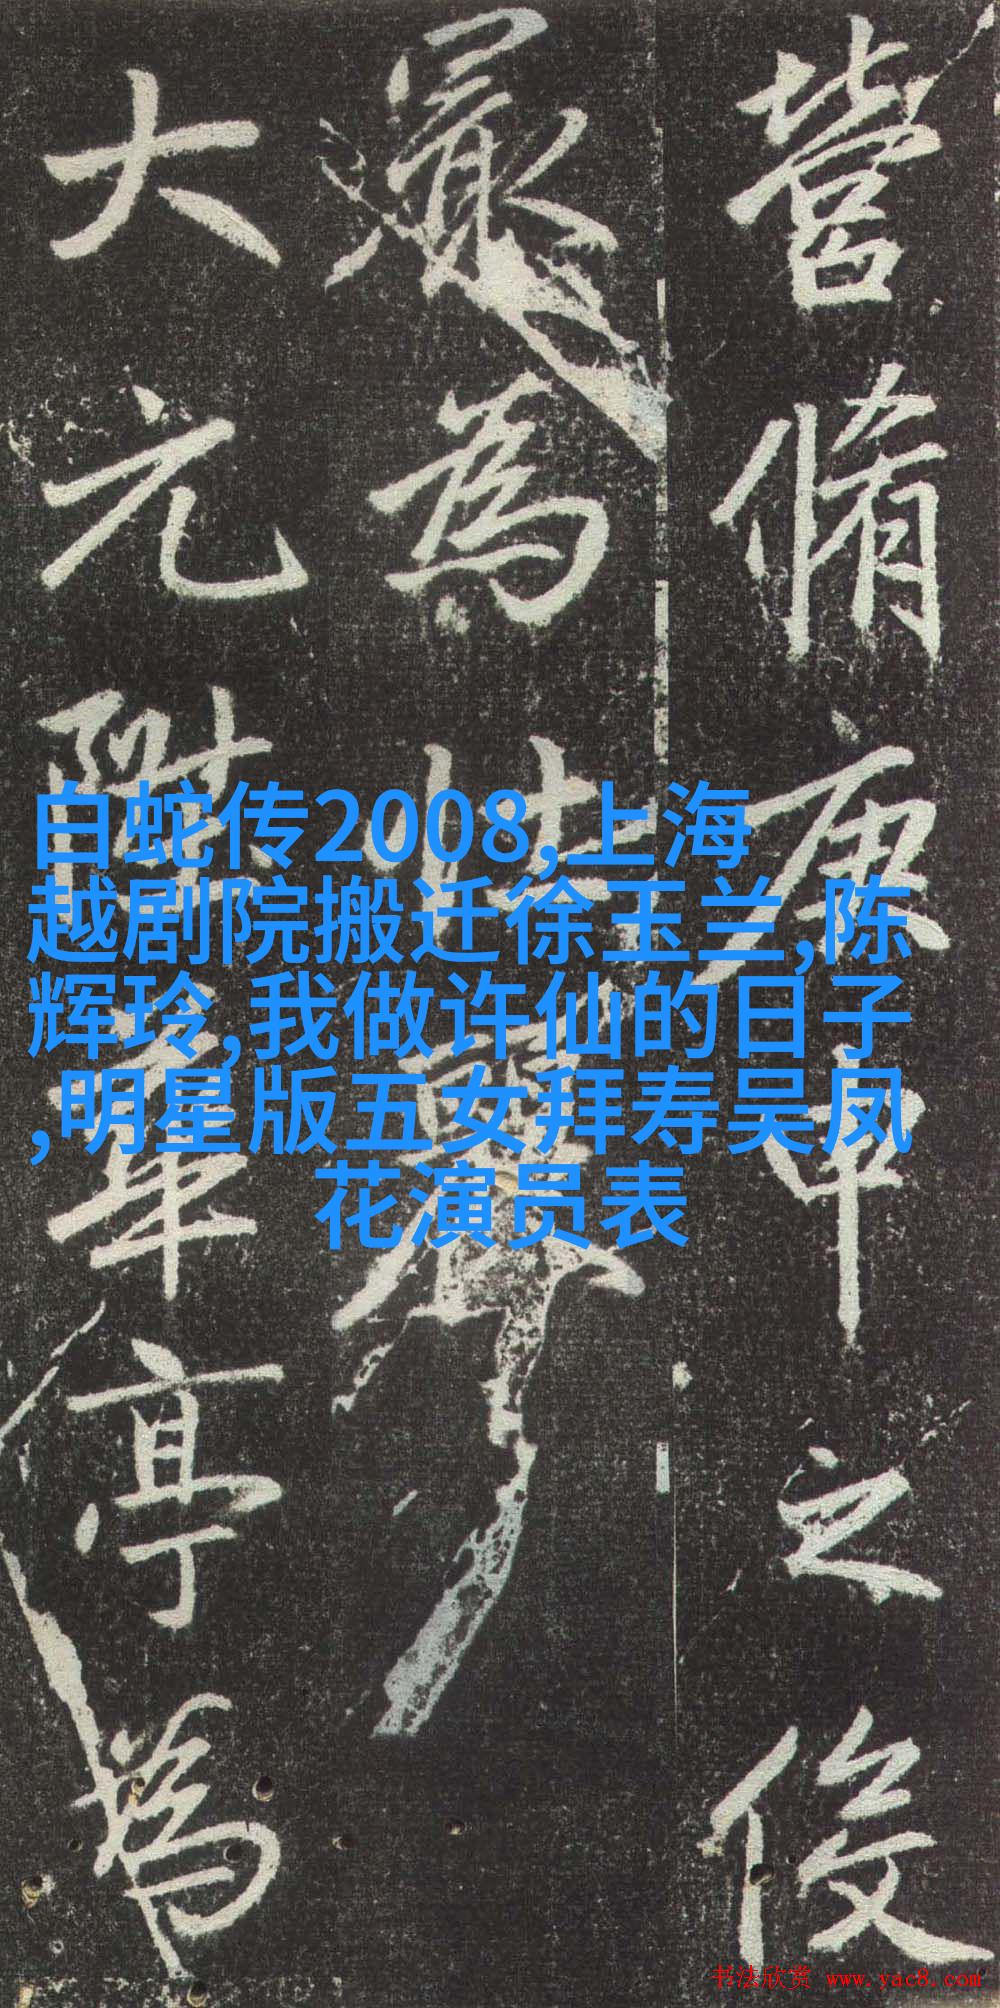 营脩庚申之後
最為壮丽
大元陞華亭為
白蛇传2008,上海
越剧院搬迁徐玉兰,陈
辉玲,我做许仙的日子
,明星版五女拜寿吴凤
花演员表
书法欣赏 www.yac8.com